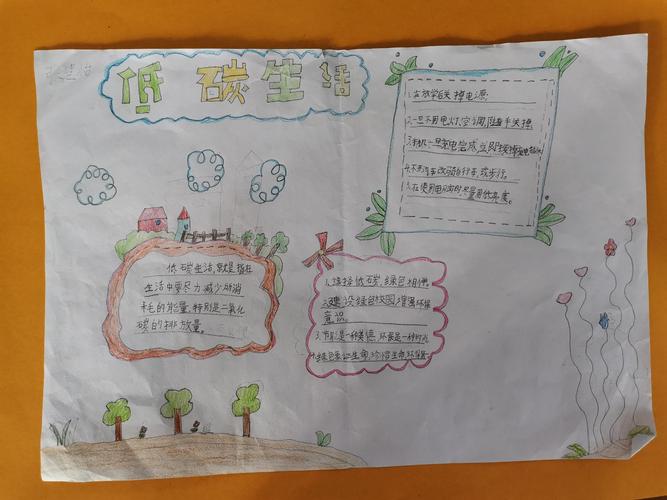 低碳生活
1.在放学后关掉电源
2.一旦不用电灯、空调,随手关掉
3.手机一旦充电完成立即拔掉
4.不开汽车改骑自行车,或步行。
5.在使用电脑时尽量用低亮度。
低碳生活,就是指在
生活中要尽力减少所消
耗的能量,特别是二氧化
碳的排放量。
1.选择低碳,绿色相伴。
2.建设绿色校园增强环保
意识。
3.节能是一种美德,环保是一种时尚